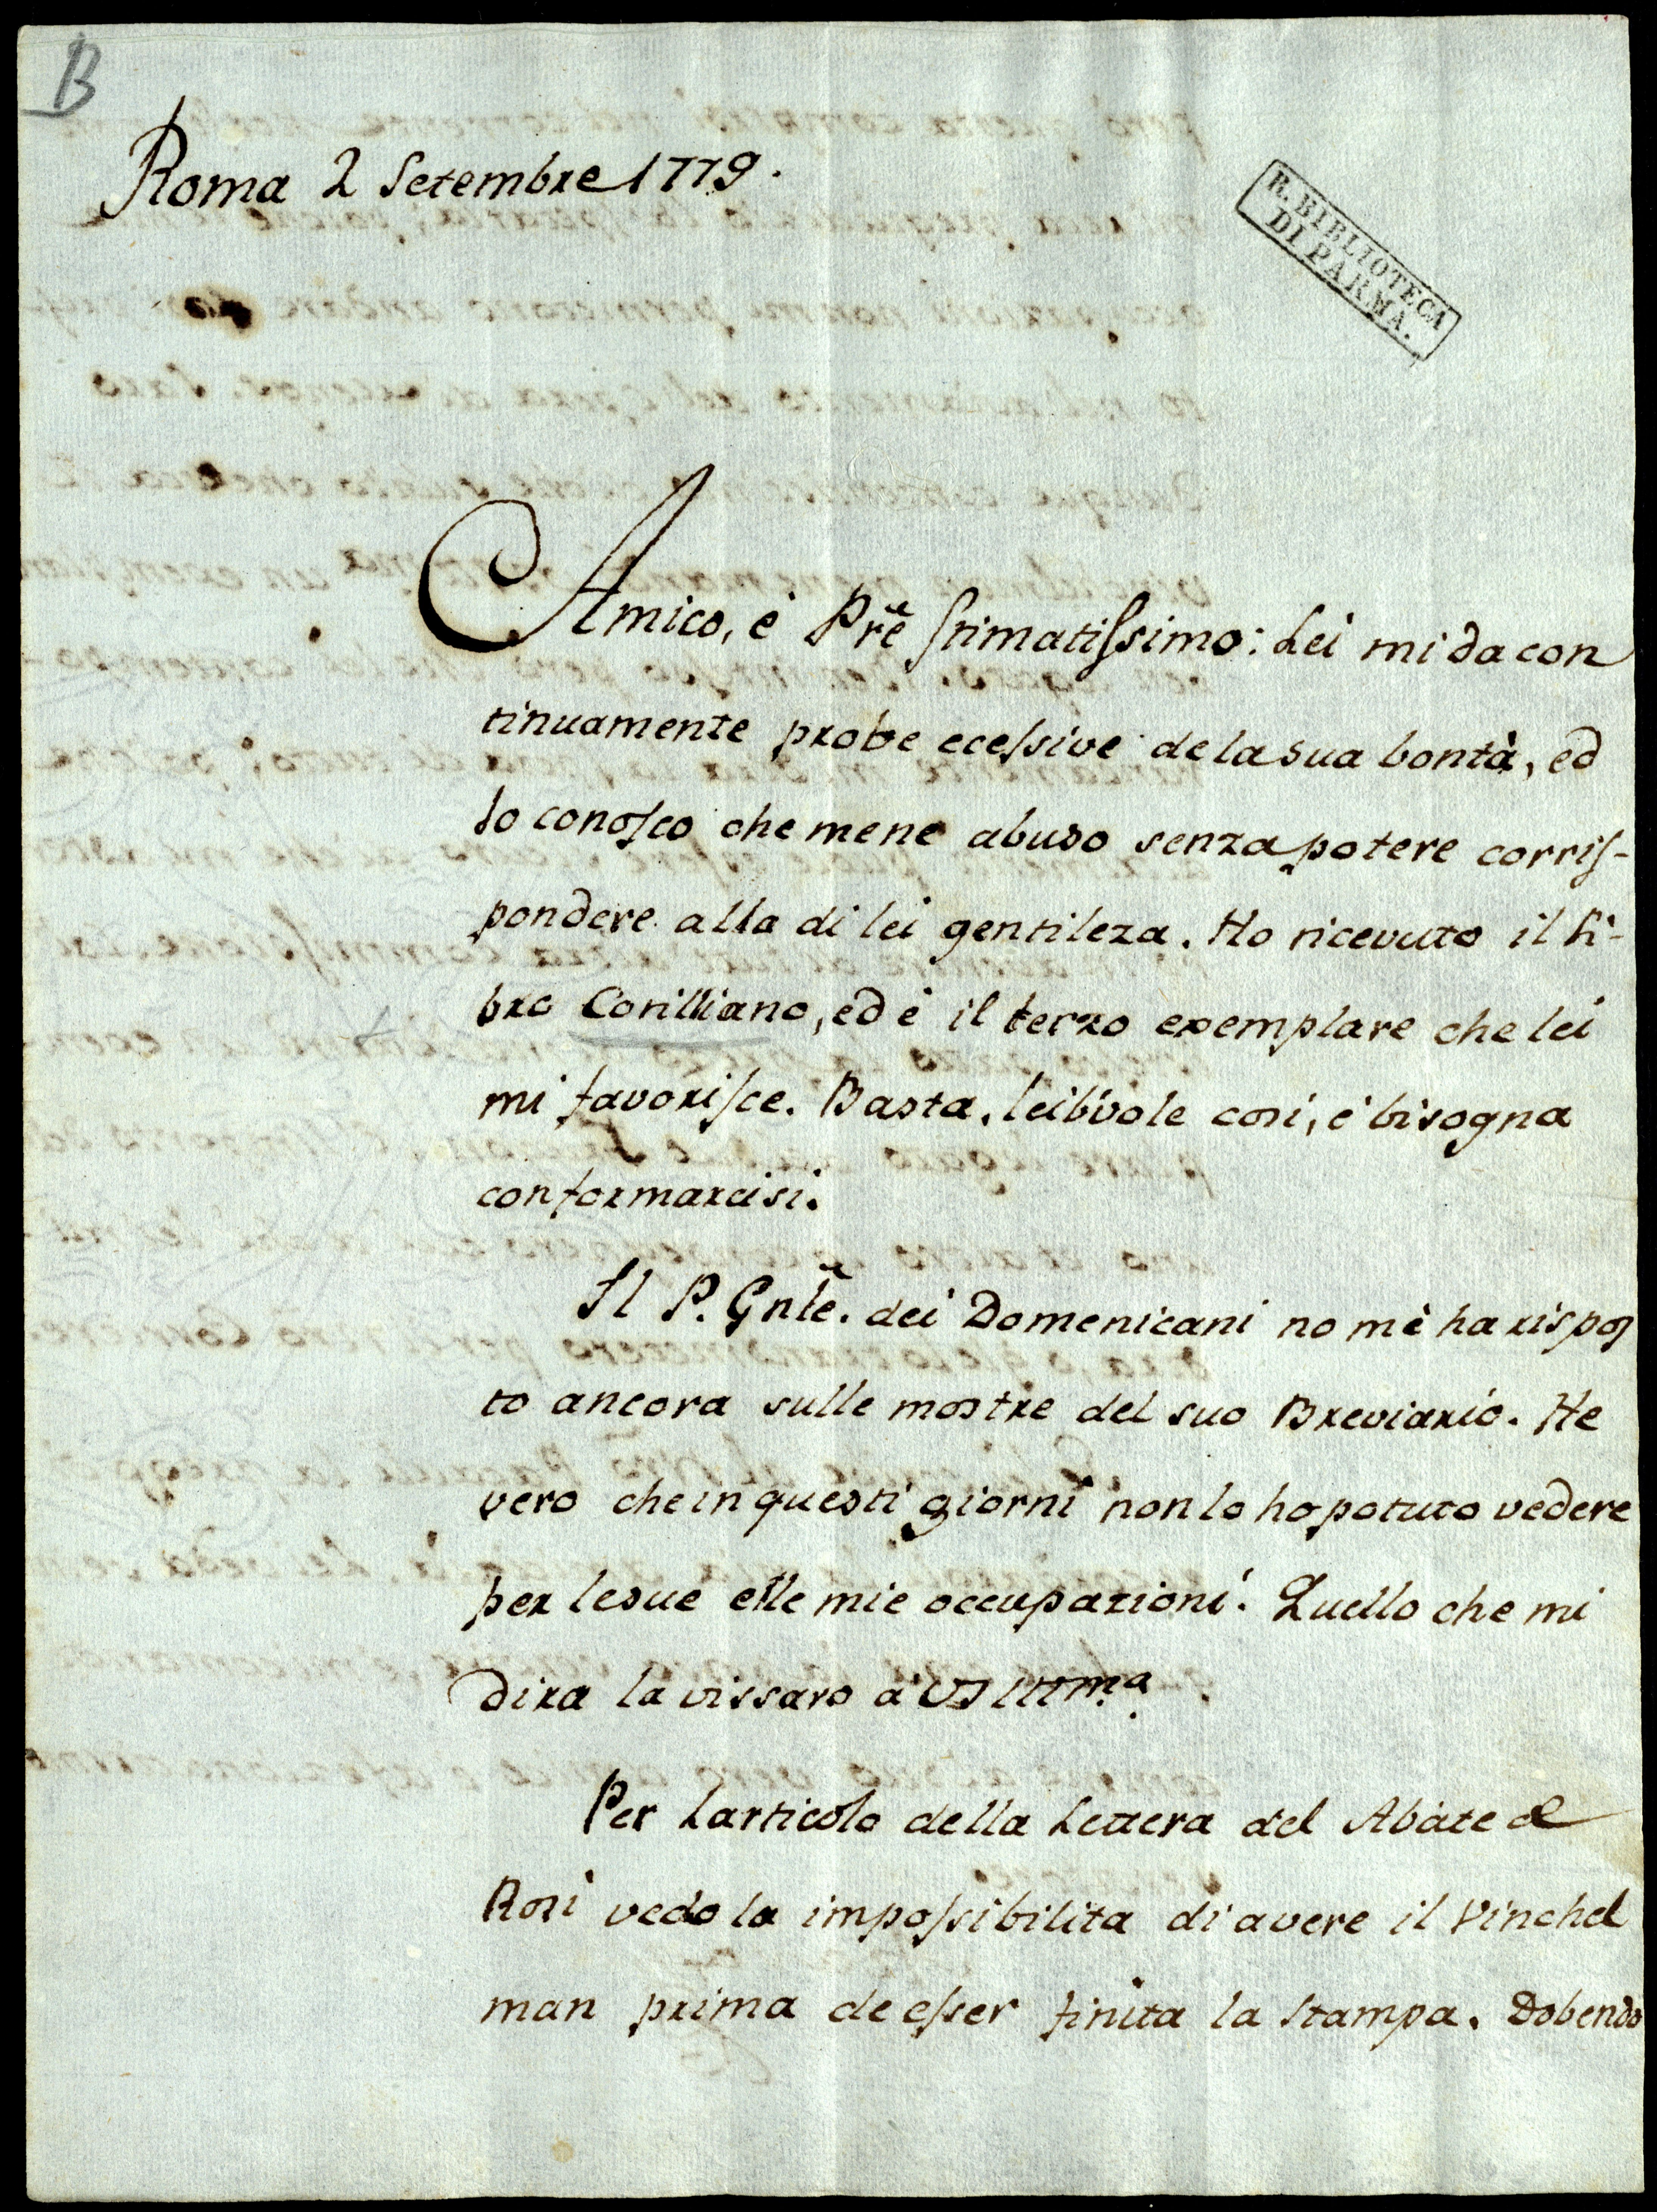 B
Roma 2 Setembre 1779.
R. BIBLIOTECA
DI PARMA.
Amico, è Pr̃e stimatissimo: Lei mi da con
tinuamente probe ecessive de la sua bontà, ed
Io conosco che mene abuso senza potere corris-
pondere alla di lei gentileza. Ho ricevuto il li-
bro Corilliano, ed è il terzo exemplare che lei
mi favorisce. Basta, lei vole cosi, è bisogna
conformarcisi.
Il P. Gnl̃e. dei Domenicani no mè ha rispos
to ancora sulle mostre del suo Breviario. He
vero che in questi giorni non lo ho potuto vedere
per le sue elle mie occupazioni. Quello che mi
dira la vissaro à VS Illma.
Per Larticolo della Lettera del Abate de
Rosi vedo la impossibilita di avere il Vinchel
man prima de esser finita la stampa. Dobendo